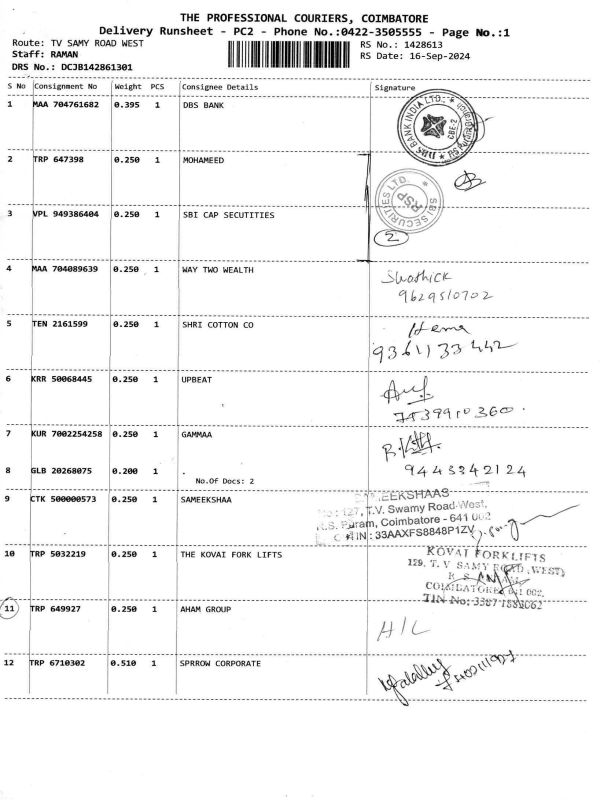 THE PROFESSIONAL COURIERS, COIMBATORE
Delivery Runsheet - PC2 - Phone No.:0422-3505555 - Page No.:1
Route: TV SAMY ROAD WEST
Staff: RAMAN
DRS No.: DCJB142861301
RS No.: 1428613
RS Date: 16-Sep-2024
S No Consignment No Weight PCS Consignee Details Signature
1 MAA 704761682 0.395 1 DBS BANK
DBS BANK INDIA LTD.,
CBE-2
2 TRP 647398 0.250 1 MOHAMEED
SBI SECURITIES LTD.
RSP
3 VPL 949386404 0.250 1 SBI CAP SECUTITIES
2
4 MAA 704089639 0.250 1 WAY TWO WEALTH
Swathick
9629510702
5 TEN 2161599 0.250 1 SHRI COTTON CO
Hema
9361133442
6 KRR 50068445 0.250 1 UPBEAT
7539910360
7 KUR 7002254258 0.250 1 GAMMAA
8 GLB 20268075 0.200 1 .
No.Of Docs: 2
9443342124
9 CTK 500000573 0.250 1 SAMEEKSHAA
SAMEEKSHAAS
No: 127, T.V. Swamy Road-West,
R.S. Puram, Coimbatore - 641 002
GSTIN : 33AAXFS8848P1ZV
10 TRP 5032219 0.250 1 THE KOVAI FORK LIFTS
KOVAI FORKLIFTS
129, T. V SAMY ROAD (WEST)
COIMBATORE 641 002.
TIN No:
11 TRP 649927 0.250 1 AHAM GROUP
H/L
12 TRP 6710302 0.510 1 SPRROW CORPORATE